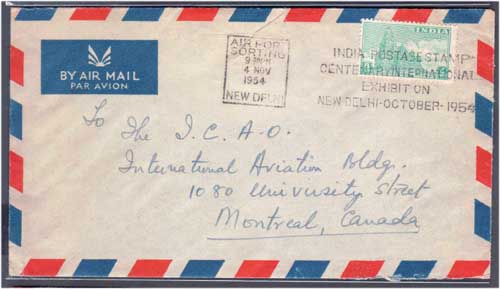 BY AIR MAIL
PAR AVION
AIR FOR.
SORTING
4 NOV
1954
NEW DELHI
INDIA
INDIA POSTAGE STAMP
CENTENARY INTERNATIONAL
EXHIBIT ON
NEW DELHI-OCTOBER-1954
To
The I.C.A.O.
International Aviation Bldg.
1080 University Street
Montreal, Canada